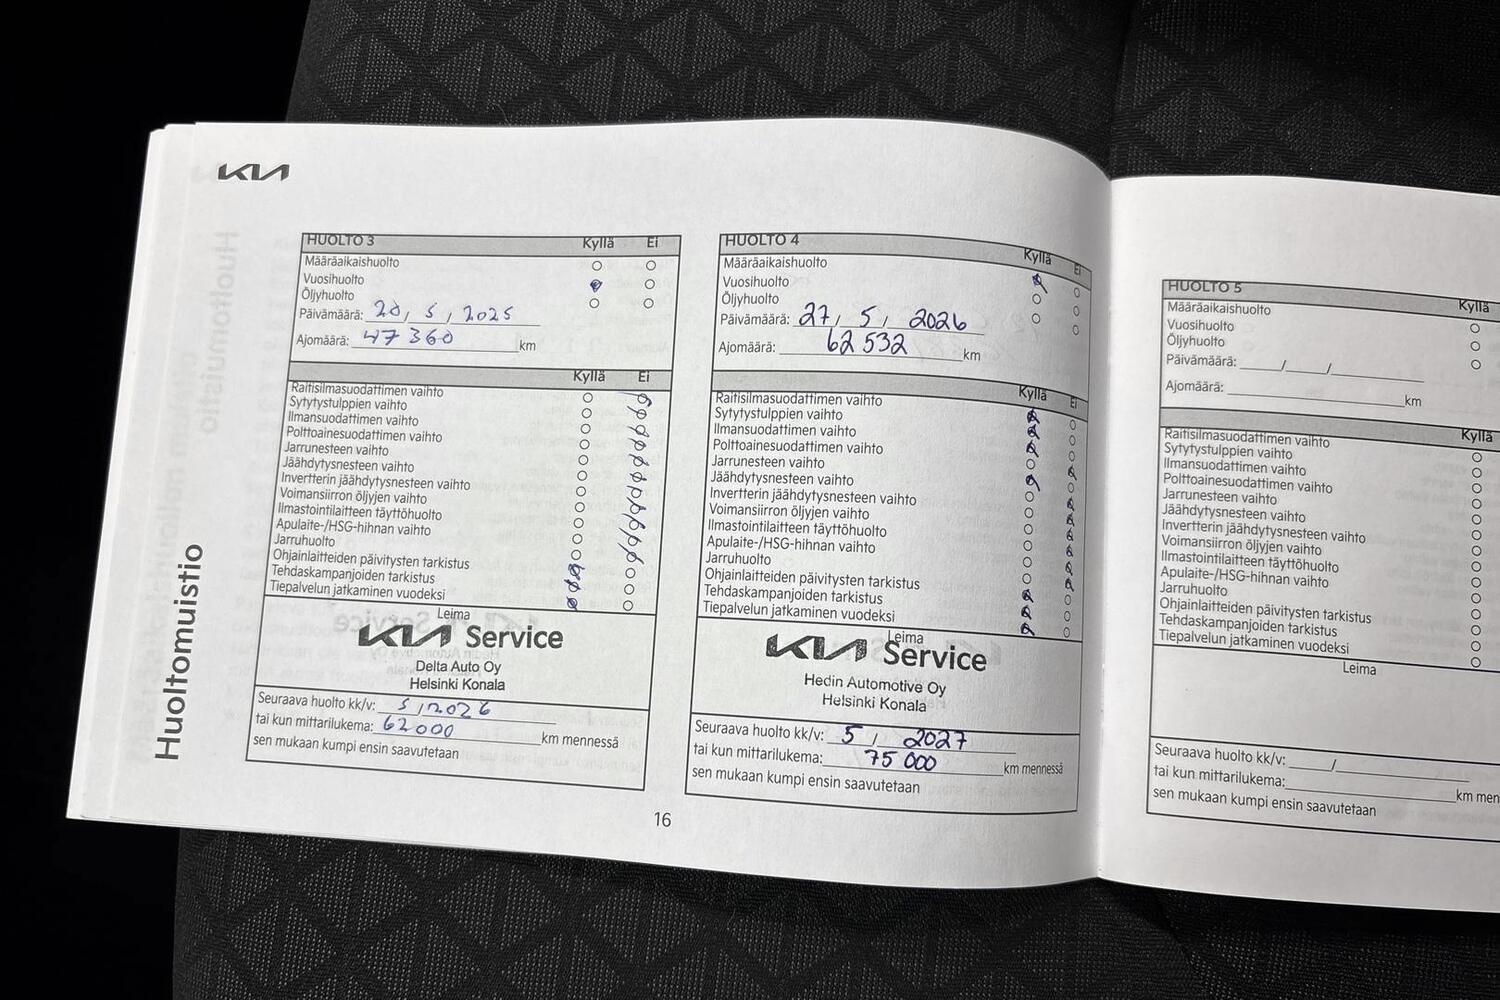 KIA
Huoltomuistio
HUOLTO 3 Kyllä Ei
Määräaikaishuolto
Vuosihuolto
Öljyhuolto
Päivämäärä: 20, 5, 2025
Ajomäärä: 47 360 km
Kyllä Ei
Raitisilmasuodattimen vaihto
Sytytystulppien vaihto
Ilmansuodattimen vaihto
Polttoainesuodattimen vaihto
Jarrunesteen vaihto
Jäähdytysnesteen vaihto
Invertterin jäähdytysnesteen vaihto
Voimansiirron öljyjen vaihto
Ilmastointilaitteen täyttöhuolto
Apulaite-/HSG-hihnan vaihto
Jarruhuolto
Ohjainlaitteiden päivitysten tarkistus
Tehdaskampanjoiden tarkistus
Tiepalvelun jatkaminen vuodeksi
Leima
KIA Service
Delta Auto Oy
Helsinki Konala
Seuraava huolto kk/v: 5/2026
tai kun mittarilukema: 62000 km mennessä
sen mukaan kumpi ensin saavutetaan
HUOLTO 4 Kyllä Ei
Määräaikaishuolto
Vuosihuolto
Öljyhuolto
Päivämäärä: 27, 5, 2026
Ajomäärä: 62 532 km
Kyllä Ei
Raitisilmasuodattimen vaihto
Sytytystulppien vaihto
Ilmansuodattimen vaihto
Polttoainesuodattimen vaihto
Jarrunesteen vaihto
Jäähdytysnesteen vaihto
Invertterin jäähdytysnesteen vaihto
Voimansiirron öljyjen vaihto
Ilmastointilaitteen täyttöhuolto
Apulaite-/HSG-hihnan vaihto
Jarruhuolto
Ohjainlaitteiden päivitysten tarkistus
Tehdaskampanjoiden tarkistus
Tiepalvelun jatkaminen vuodeksi
Leima
KIA Service
Hedin Automotive Oy
Helsinki Konala
Seuraava huolto kk/v: 5 / 2027
tai kun mittarilukema: 75 000 km mennessä
sen mukaan kumpi ensin saavutetaan
16
HUOLTO 5 Kyllä
Määräaikaishuolto
Vuosihuolto
Öljyhuolto
Päivämäärä: / /
Ajomäärä: km
Kyllä
Raitisilmasuodattimen vaihto
Sytytystulppien vaihto
Ilmansuodattimen vaihto
Polttoainesuodattimen vaihto
Jarrunesteen vaihto
Jäähdytysnesteen vaihto
Invertterin jäähdytysnesteen vaihto
Voimansiirron öljyjen vaihto
Ilmastointilaitteen täyttöhuolto
Apulaite-/HSG-hihnan vaihto
Jarruhuolto
Ohjainlaitteiden päivitysten tarkistus
Tehdaskampanjoiden tarkistus
Tiepalvelun jatkaminen vuodeksi
Leima
Seuraava huolto kk/v: /
tai kun mittarilukema: km men
sen mukaan kumpi ensin saavutetaan